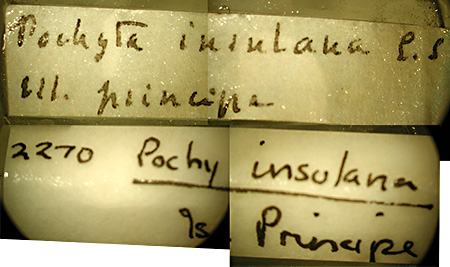 Pochyta insulana E.S
Ill. principe
2270 Pochy insulana
Is. Principe